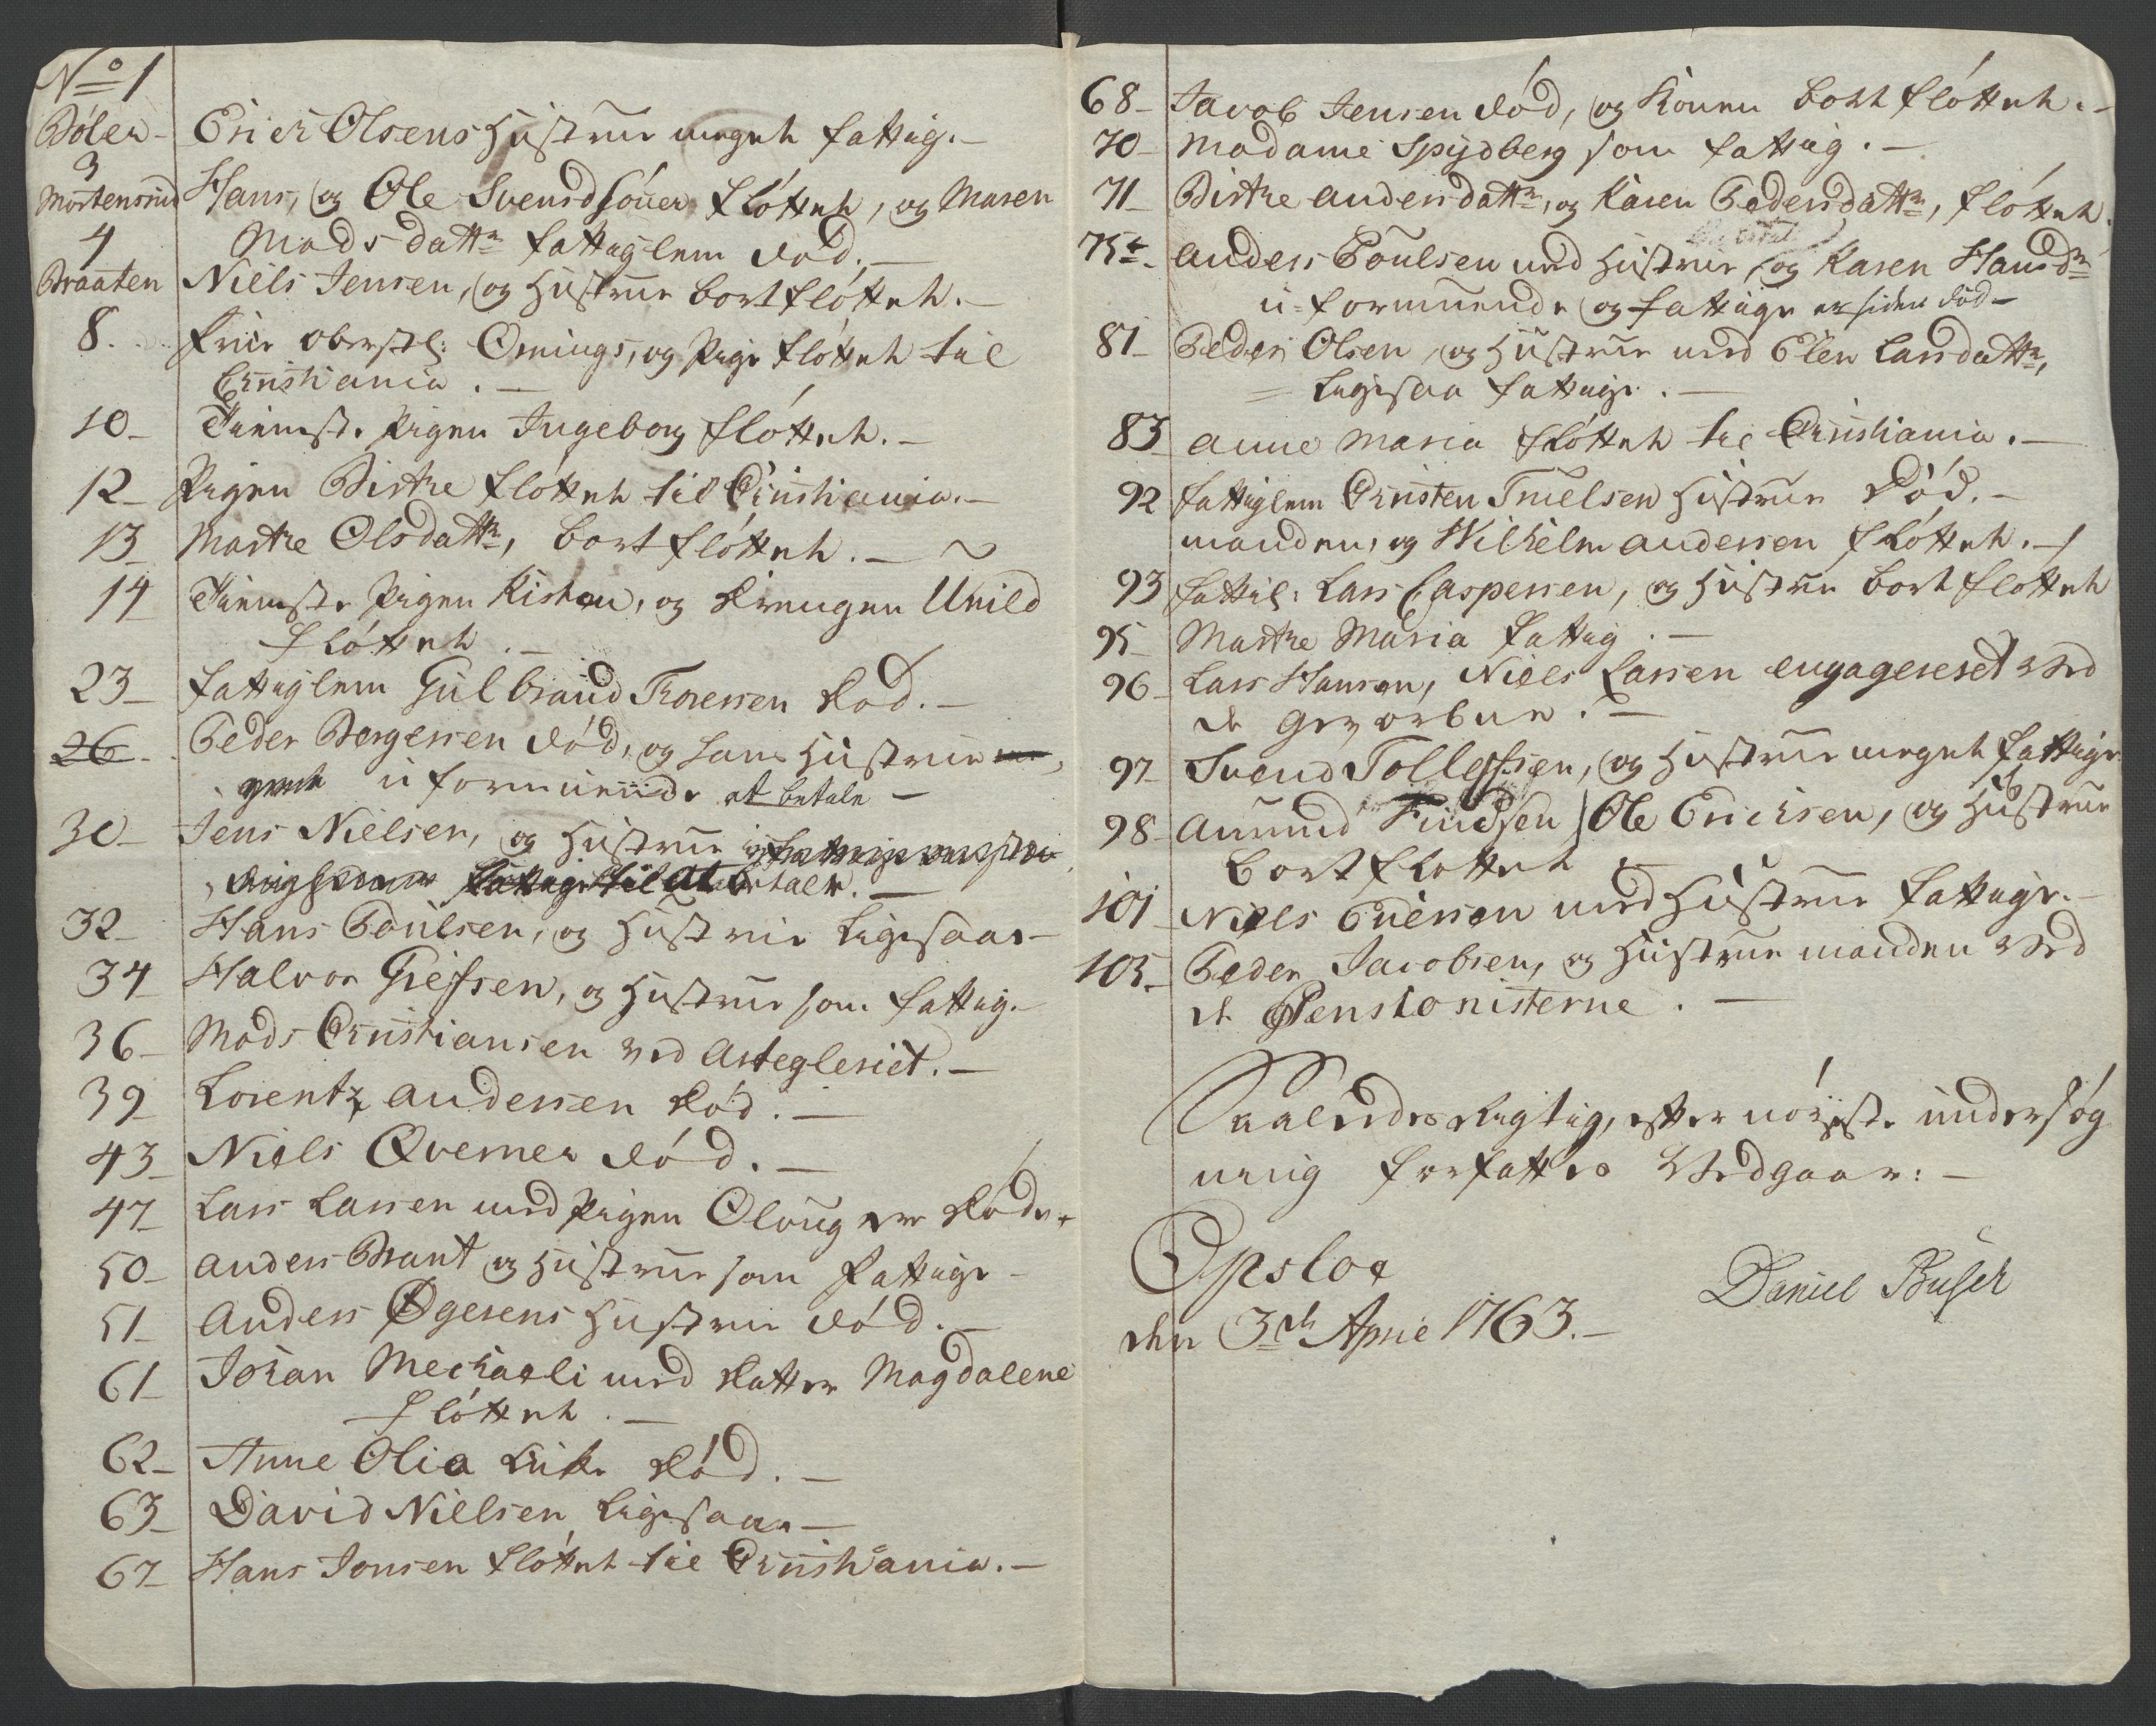 No 1
Bøler - Erich Olsens Hustrue meget fattig. -
3
Mortensrud Hans, og Ole Svendsønner fløttet, og Maren
Mads dattr fattiglem død. -
4
Braaten Niels Jensen, og Hustrue bortfløttet. -
8. Frue Oberstl: Onings, og Pige fløttet til
Christiania. -
10 - Tieneste Pigen Ingeborg fløttet. -
12 - Pigen Birthe fløttet til Christiania. -
13 - Marthe Olsdattr, bort fløttet. -
14 Tieneste Pigen Kisten, og Drengen Unild
fløttet. -
23 - fattiglem Gulbrand Thoresen død. -
26 - Peder Borgersen død, og hans Hustrue me
get uformuende at betale -
30 - Jens Nielsen, og Hustrue
fattige til at betale. -
32 - Hans Poulsen, og Hustrue ligesaa -
34 - Halvor Giefsen, og Hustrue som fattig. -
36 - Mads Christiansen ved Artegleriet. -
39 - Lorentz Andersen død. -
43 - Niels Qverner død. -
47 - Lars Larsen med Pigen Oloug er døde.
50 - Anders Brant og Hustrue som fattige -
51 - Anders Øgerens Hustrue død. -
61 - Johan Mechaeli med datter Magdalene
fløttet. -
62 - Anne Olia død. -
63 - David Nielsen ligesaa -
67 - Hans Jonsen fløttet til Christiania. -
68 - Jacob Jensen død, og Konen bortfløttet. -
70 - Madame Spydberg som fattig. -
71 - Birthe Andersdattr, og Karen Pedersdattr, fløttet.
75 - Anders Poulsen med Hustrue, og Karen Hansdr
u-formuende og fattige er siden død -
81 - Peder Olsen, og Hustrue med Elen Larsdattr,
= ligesaa fattige. -
83 - Anne Maria fløttet til Christiania. -
92 fattiglem Christen Truelsen Hustrue død. -
manden, og Wilhelm Andersen fløttet. -
93 fattigl: Lars Caspersen, og Hustrue bortfløttet
95 - Marthe Maria fattig. -
96 - Lars Hansen, Niels Larsen engageeret ved
de Gevorbne. -
97 - Svend Tollefssen, og Hustrue meget fattige
98 - Amund Findsen Ole Erichsen, og Hustrue
bortfløttet
101 - Niels Eriersen med Hustrue fattige. -
105 - Peder Jacobsen, og Hustrue manden ved
de Pensionisterne. -
Saaledes Rigtig, efter nøyeste undersøg
ning forfattes Vedgaar: -
Opsloe
den 3de April 1763. -
Daniel Busch